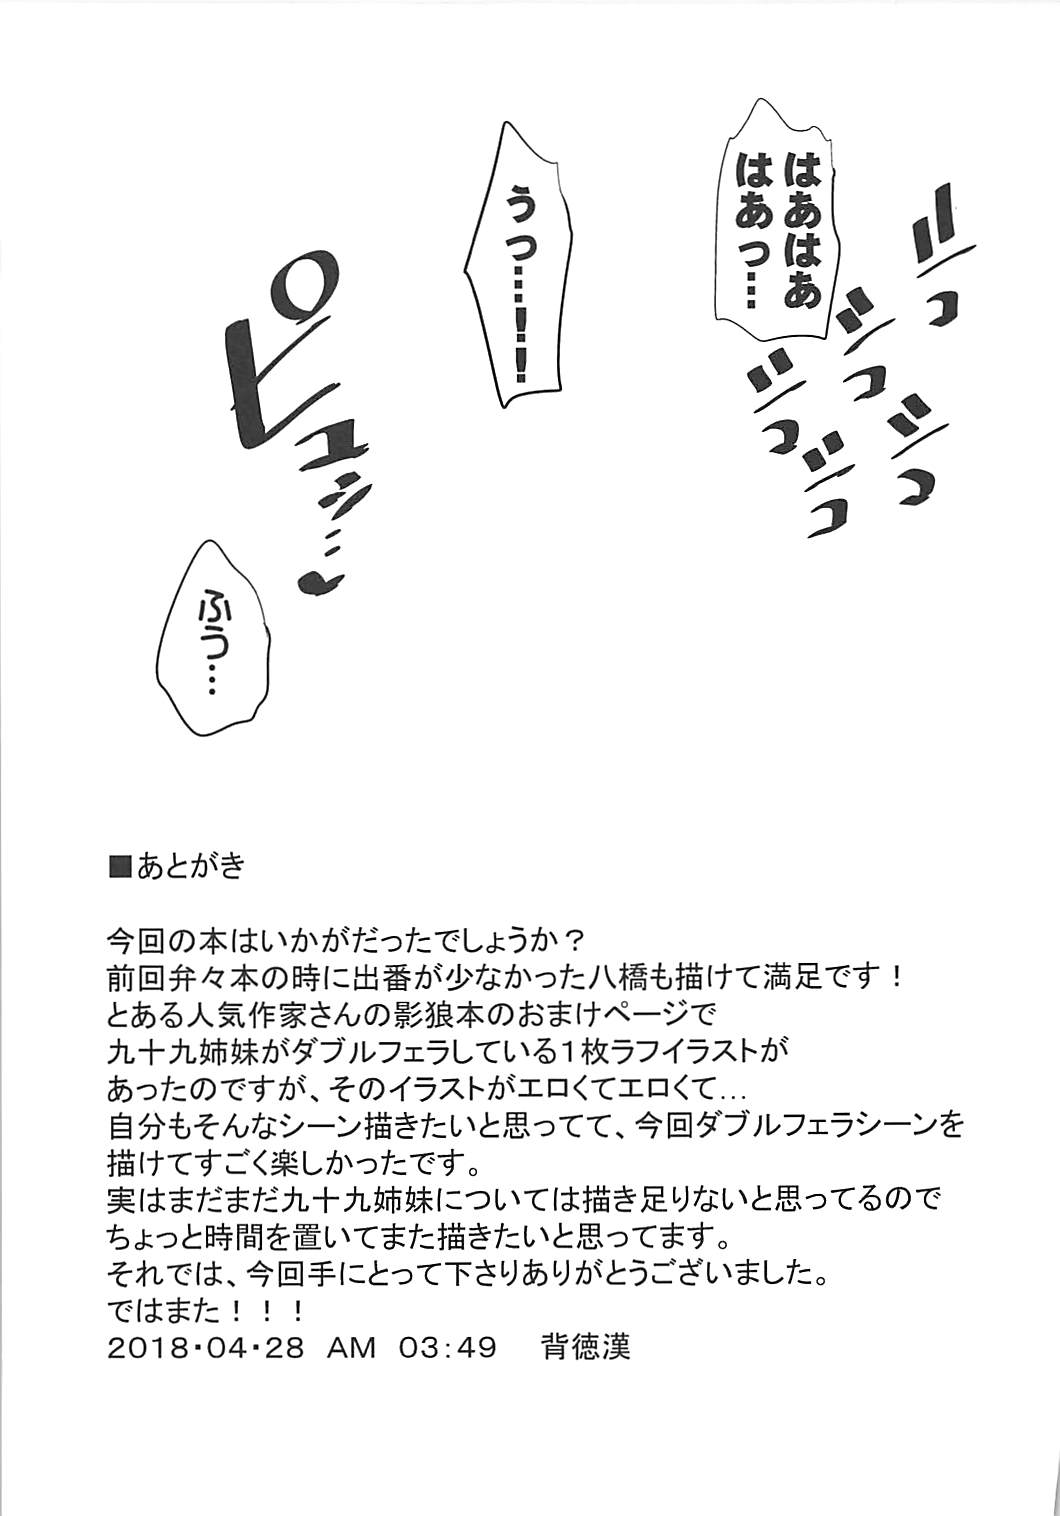 はあはあ
はあっ…
ジっ
ジっ
ジっ
ジっ
ジっ
うっ…!!
ピュッ…
ふぅ…
■あとがき
今回の本はいかがだったでしょうか？
前回弁々本の時に出番が少なかった八橋も描けて満足です！
とある人気作家さんの影狼本のおまけページで
九十九姉妹がダブルフェラしている１枚ラフイラストが
あったのですが、そのイラストがエロくてエロくて…
自分もそんなシーン描きたいと思ってて、今回ダブルフェラシーンを
描けてすごく楽しかったです。
実はまだまだ九十九姉妹については描き足りないと思ってるので
ちょっと時間を置いてまた描きたいと思ってます。
それでは、今回手にとって下さりありがとうございました。
ではまた！！！
2018・04・28　AM　03：49　背徳漢